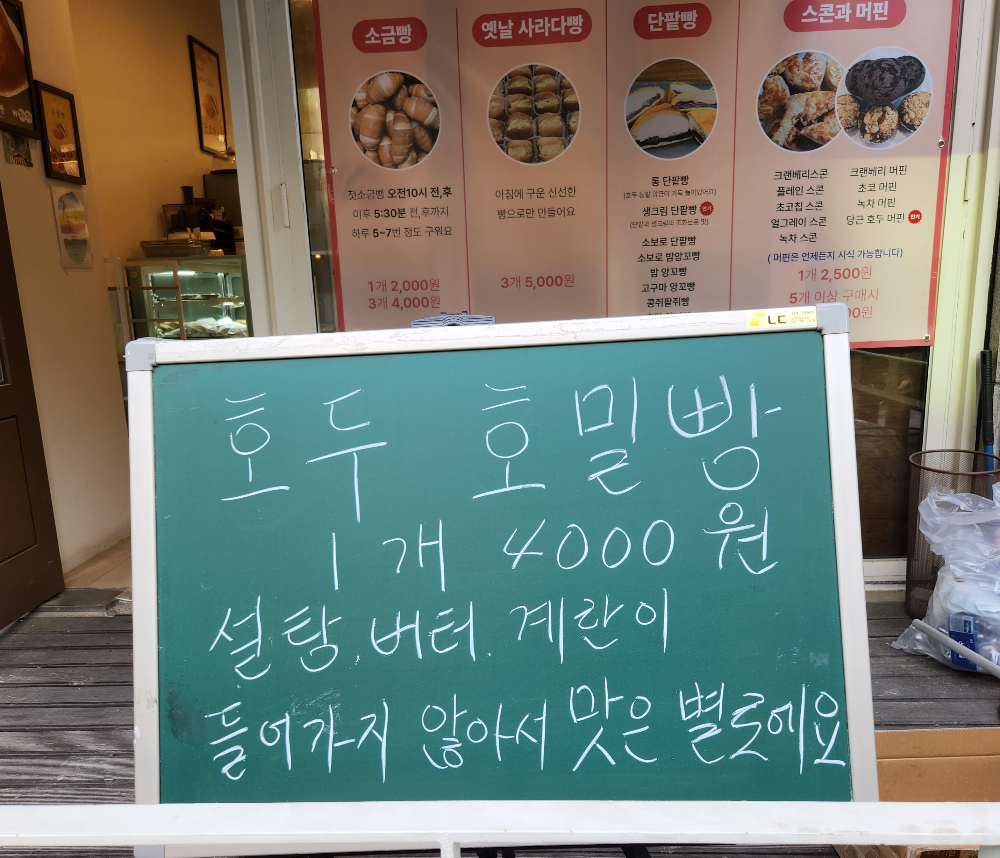 소금빵
첫소금빵 오전10시 전,후
이후 5:30분 전,후까지
하루 5~7번 정도 구워요
1개 2,000원
3개 4,000원
옛날 사라다빵
아침에 구운 신선한
빵으로만 만들어요
3개 5,000원
단팥빵
통 단팥빵
생크림 단팥빵 인기
(단팥과 생크림의 조화로운 맛)
소보로 단팥빵
소보로 밤앙꼬빵
밤 앙꼬빵
고구마 앙꼬빵
콩쥐팥쥐빵
스콘과 머핀
크랜베리스콘
플레인 스콘
초코칩 스콘
얼그레이 스콘
녹차 스콘
크랜베리 머핀
초코 머핀
녹차 머핀
당근 호두 머핀 인기
( 머핀은 언제든지 시식 가능합니다)
1개 2,500원
5개 이상 구매시
00원
LC
호두 호밀빵
1개 4000원
설탕.버터.계란이
들어가지 않아서 맛은 별로에요